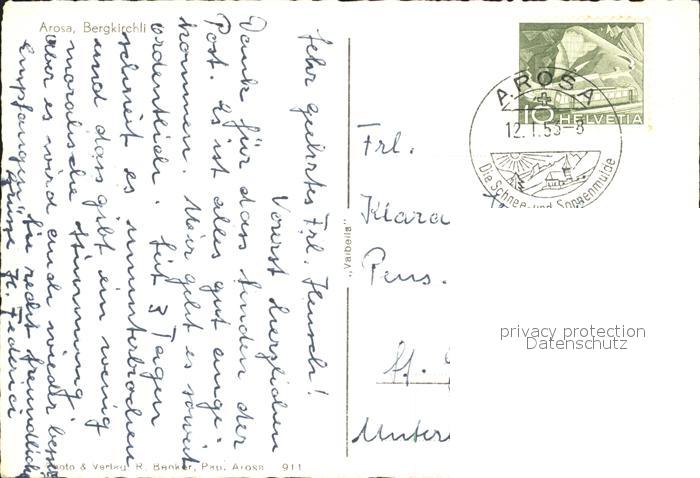 Arosa, Bergkirchli
Sehr geehrtes Frl. Hensch!
Vorerst herzlichen
Dank für dass senden der
Post. Es ist alles gut ange-
kommen. Mir geht es soweit
ordentlich. Seit 3 Tagen
schneit es ununterbrochen
und dass gibt ein wenig
moralische Stimmung
aber es wird auch wieder besser
Empfangen Sie recht freundliche
Grüsse H. Federici
Photo & Verlag R. Benker, Pap. Arosa 911
„Valbella"
AROSA
12.1.53-8
Die Schnee- und Sonnenmulde
10 HELVETIA
Frl.
Klara
Pens.
St.
Unter
privacy protection
Datenschutz